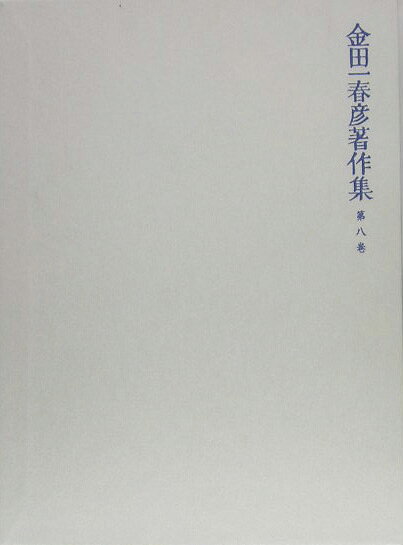 金田一春彦著作集
第八巻